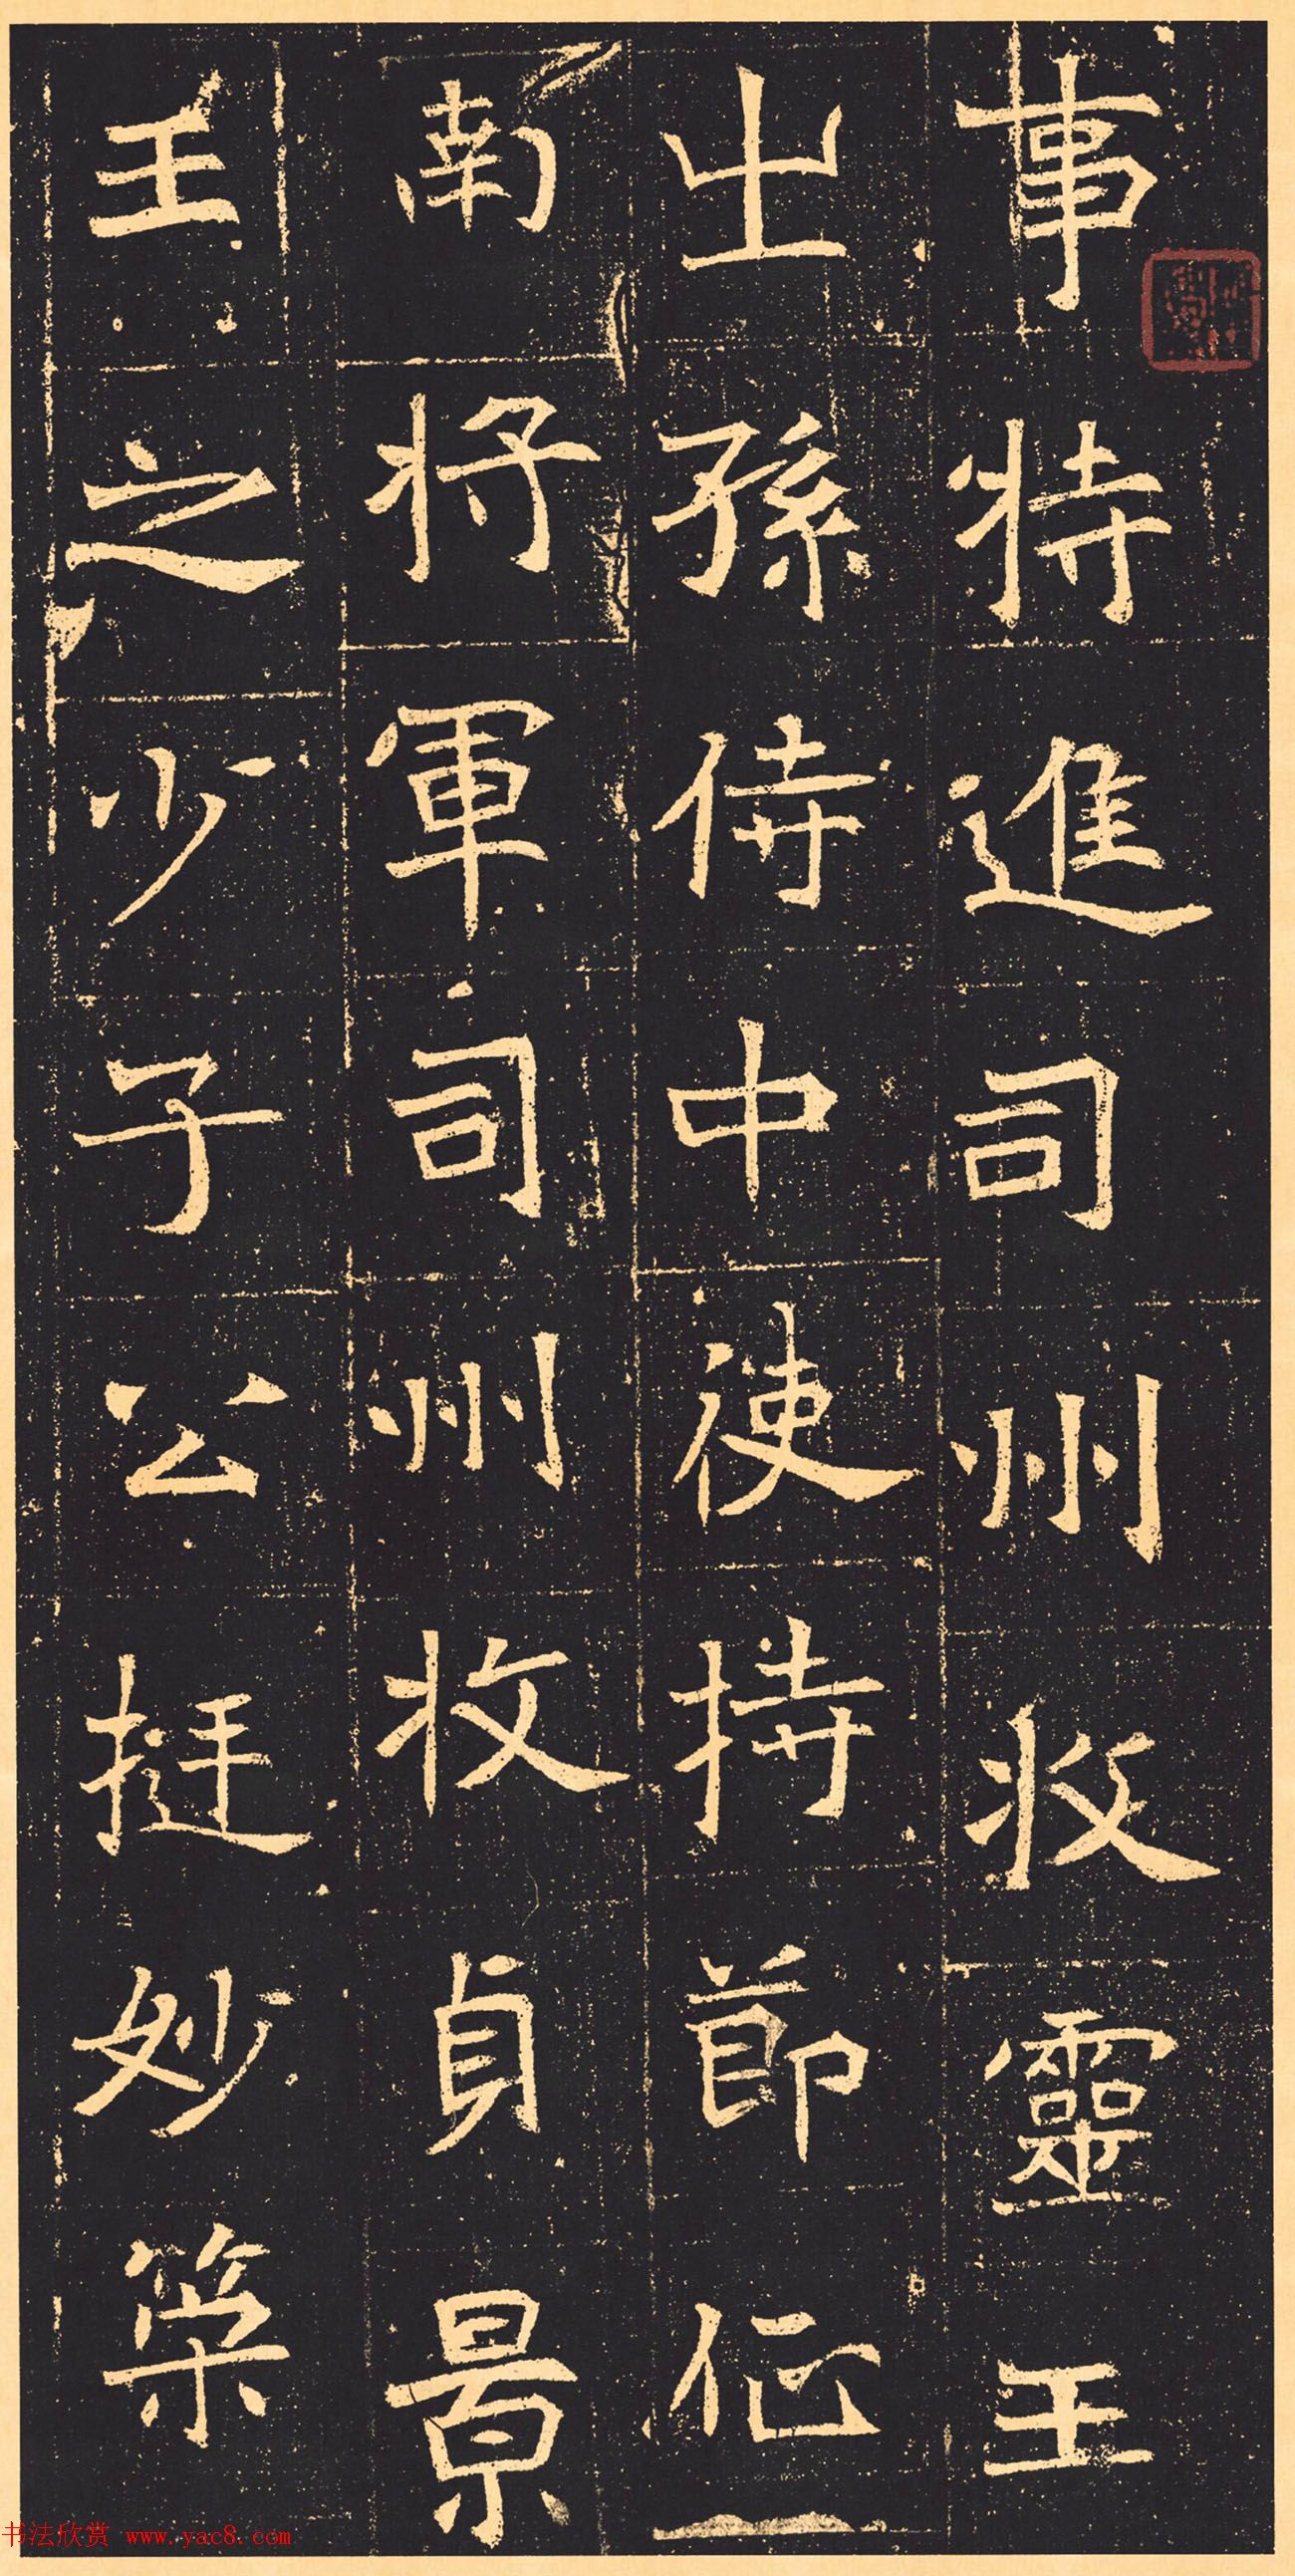 事特進司州牧靈王
之孫侍中使持節征
南將軍司州牧貞景
王之少子公挺妙策
书法欣赏 www.yac8.com